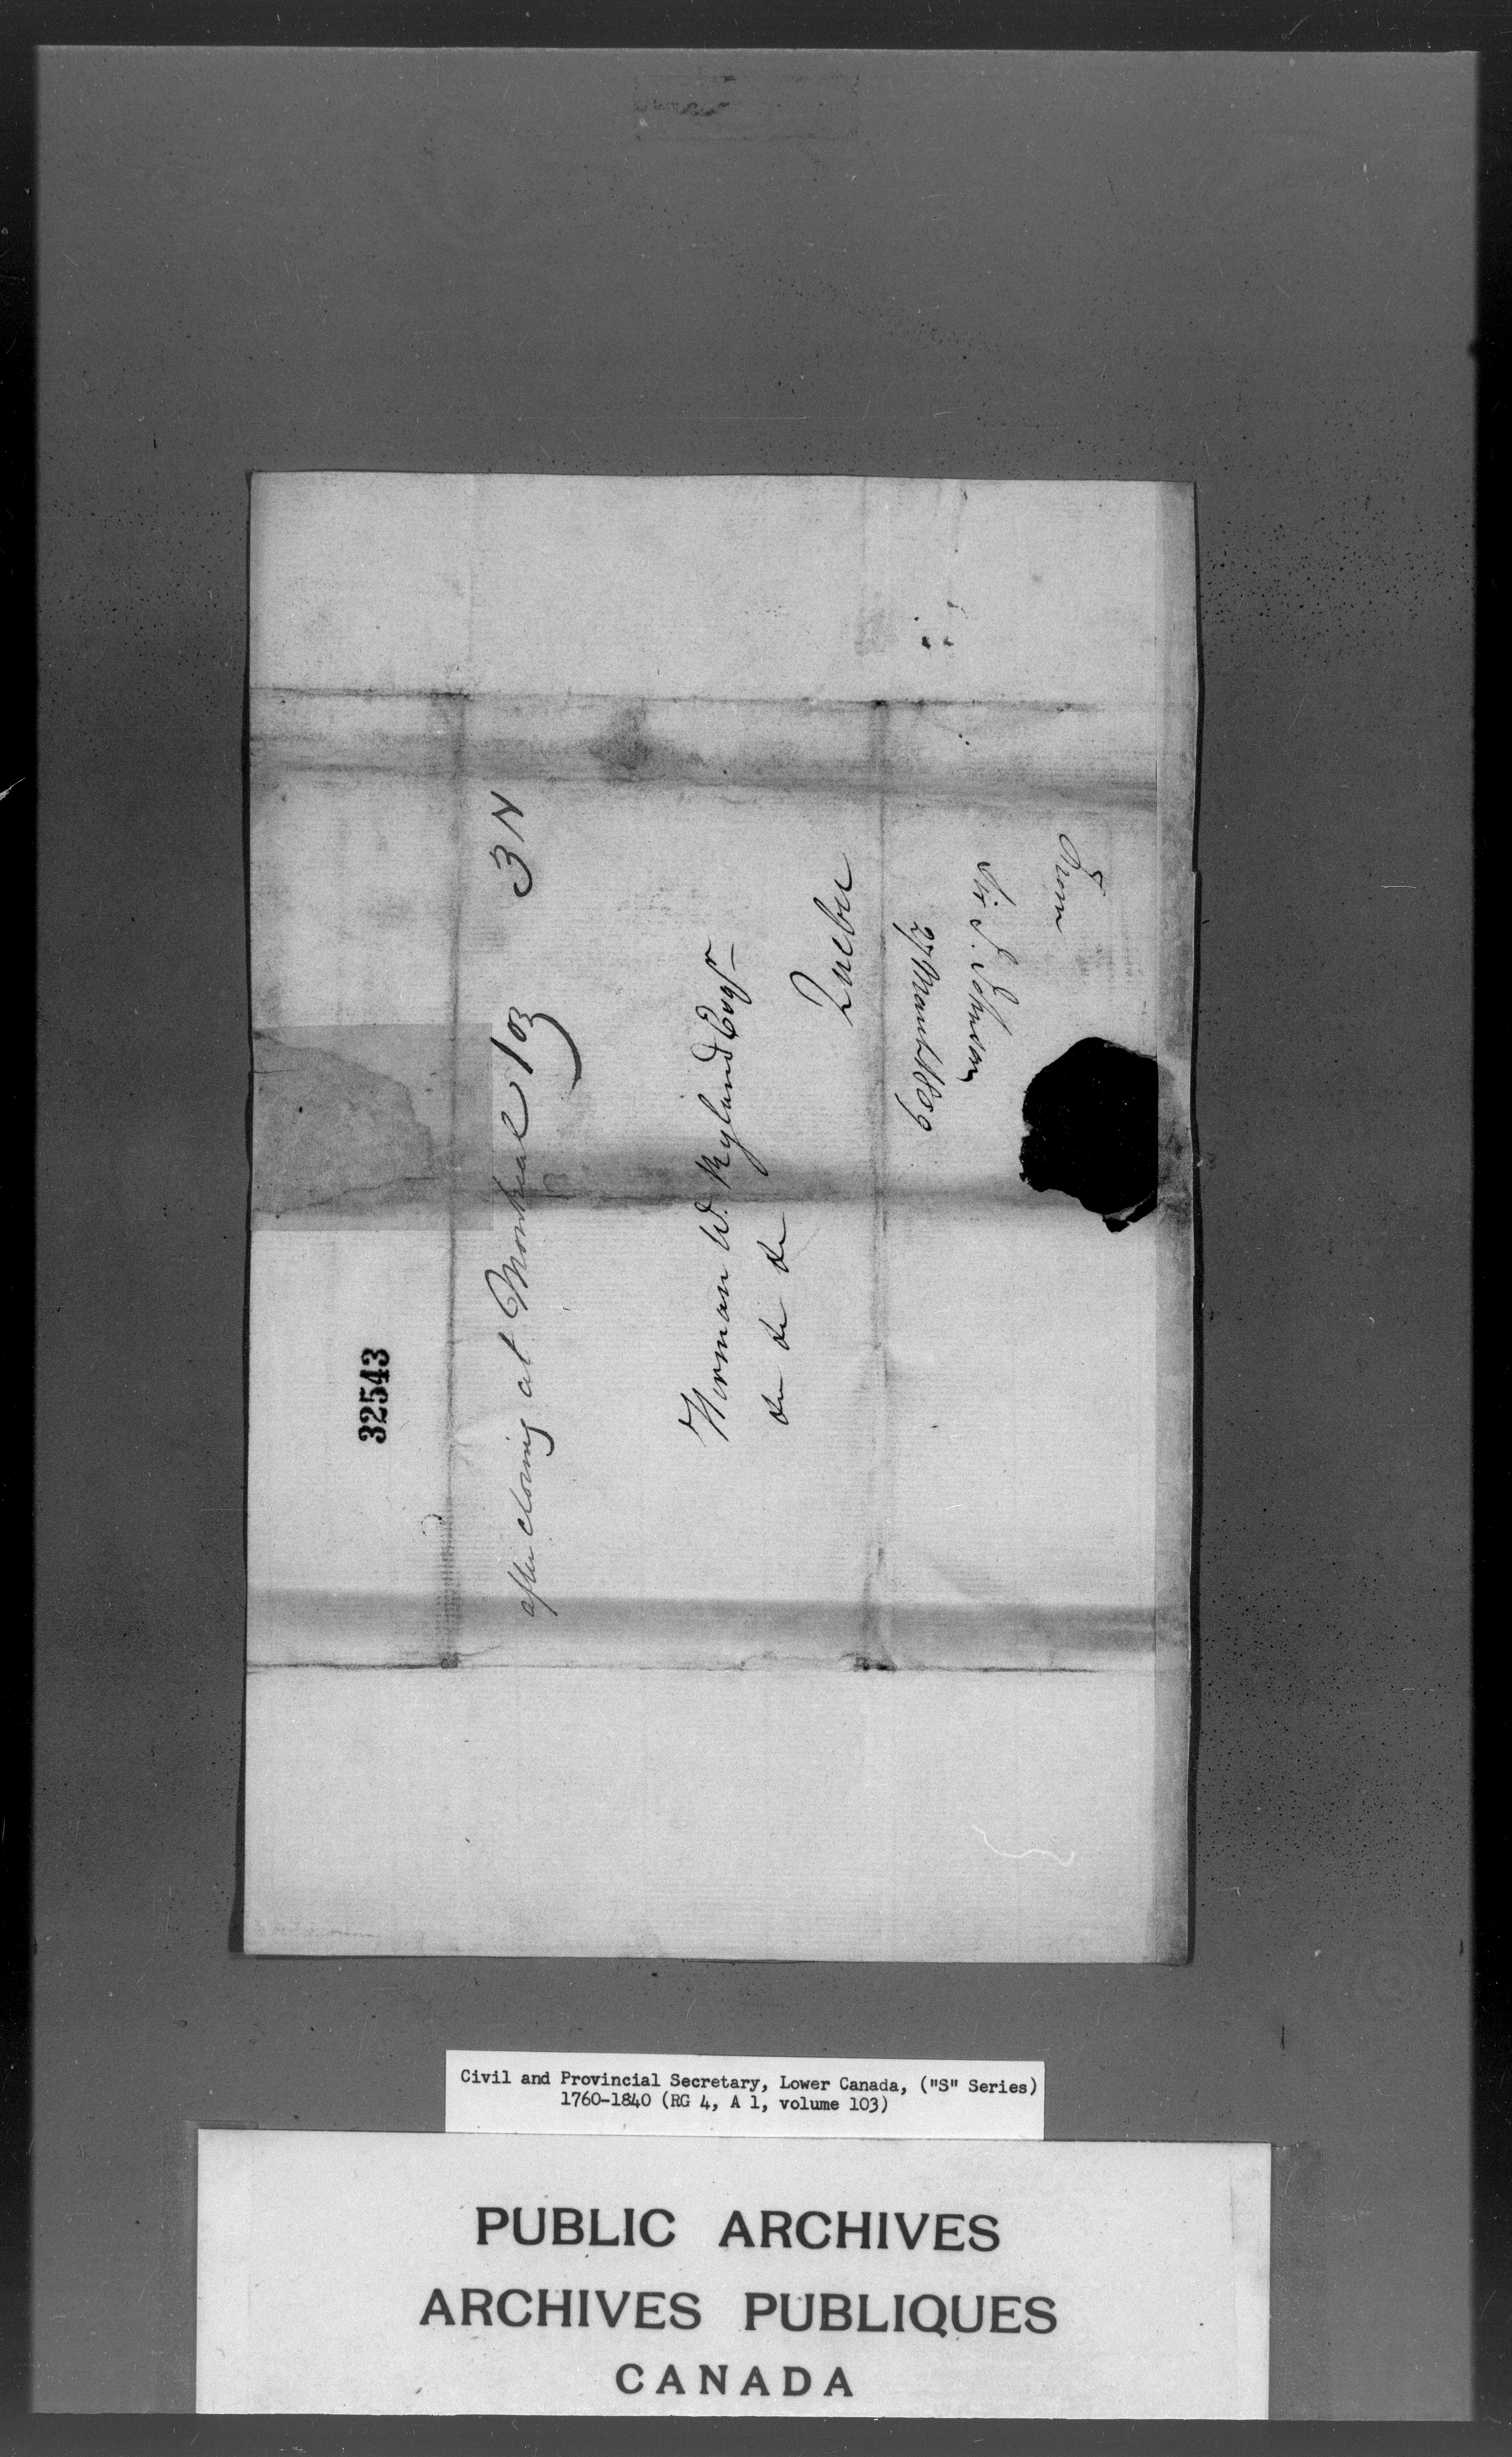 after closing at Montreal 103
3 N
Herman W. Ryland Esqr
&c &c &c
Quebec
From
Sir J. Johnson
27 March 1809
32543
Civil and Provincial Secretary, Lower Canada, ("S" Series)
1760-1840 (RG 4, A 1, volume 103)
PUBLIC ARCHIVES
ARCHIVES PUBLIQUES
CANADA